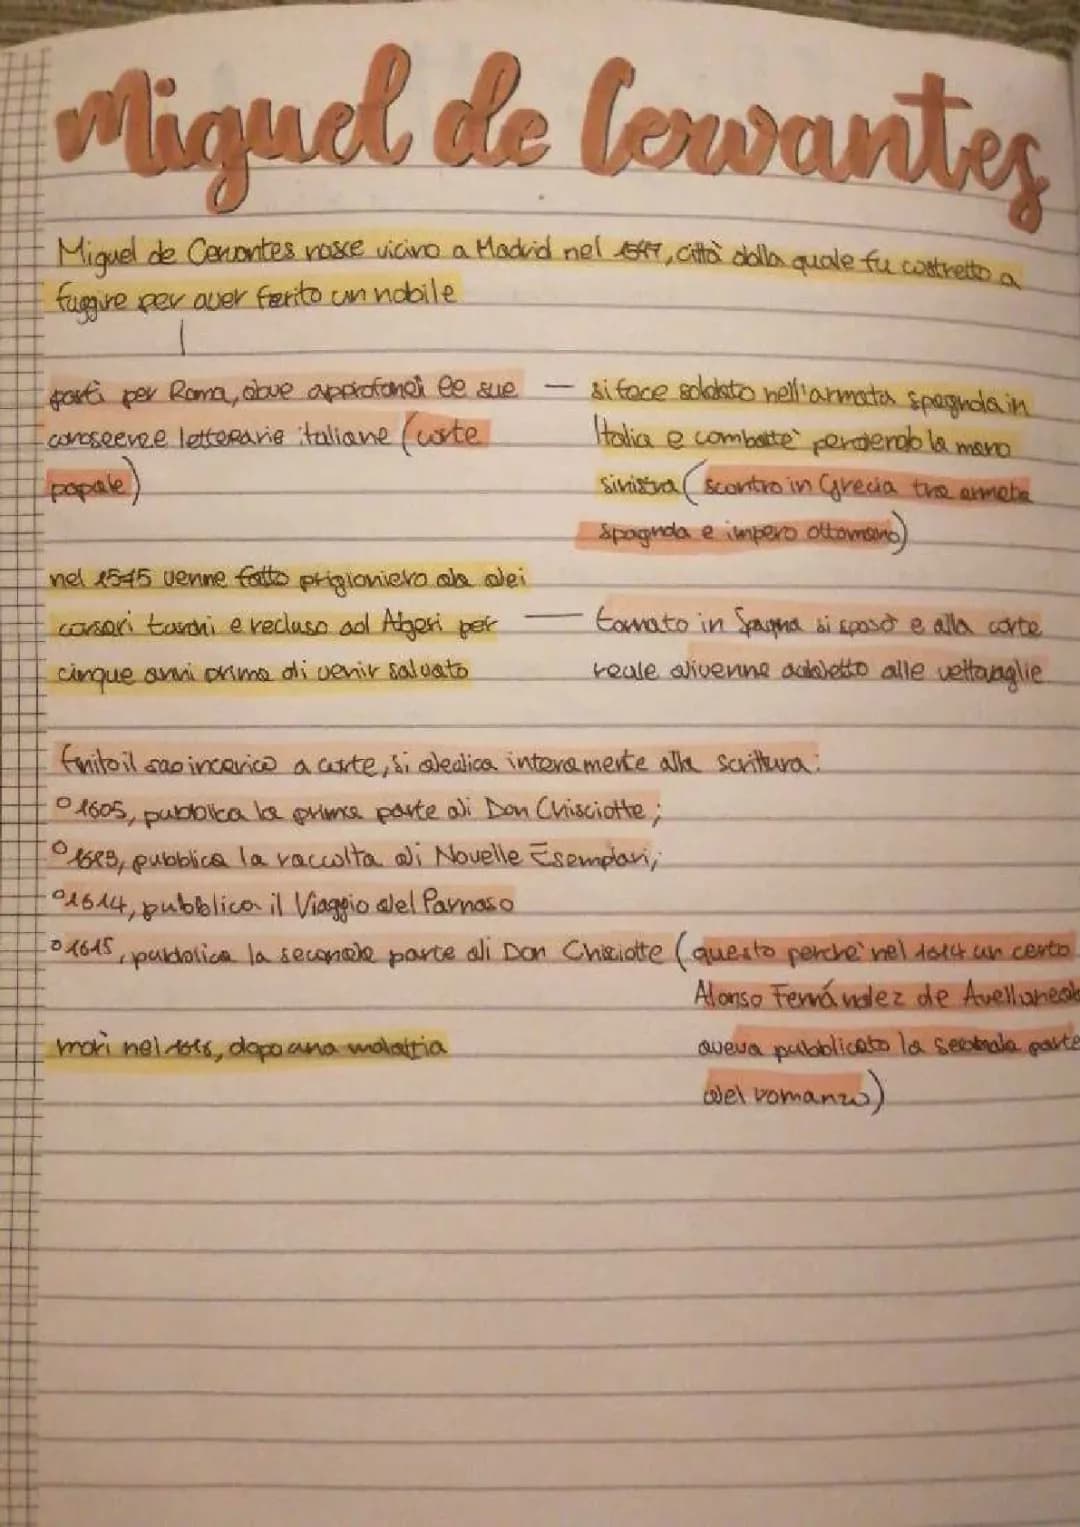 Miguel de Cervantes
Miguel de Cervantes nasce vicino a Madrid nel 1547, città dalla quale fu costretto a
fuggire per aver ferito un nobile
partì per Roma, dove approfondì le sue
conoscenze letterarie italiane (corte
papale)
si fece soldato nell'armata spagnola in
Italia e combatté perdendo la mano
sinistra (scontro in Grecia tra armata
spagnola e impero ottomano)
nel 1575 venne fatto prigioniero da dei
corsari turchi e recluso ad Algeri per
cinque anni prima di venir salvato
tornato in Spagna si sposò e alla corte
reale divenne addetto alle vettovaglie
finito il suo incarico a corte, si dedica interamente alla scrittura:
° 1605, pubblica la prima parte di Don Chisciotte;
° 1613, pubblica la raccolta di Novelle Esemplari;
° 1614, pubblica il Viaggio del Parnaso
° 1615, pubblica la seconda parte di Don Chisciotte (questo perché nel 1614 un certo
Alonso Fernández de Avellaneda
aveva pubblicato la seconda parte
del romanzo)
morì nel 1616, dopo una malattia